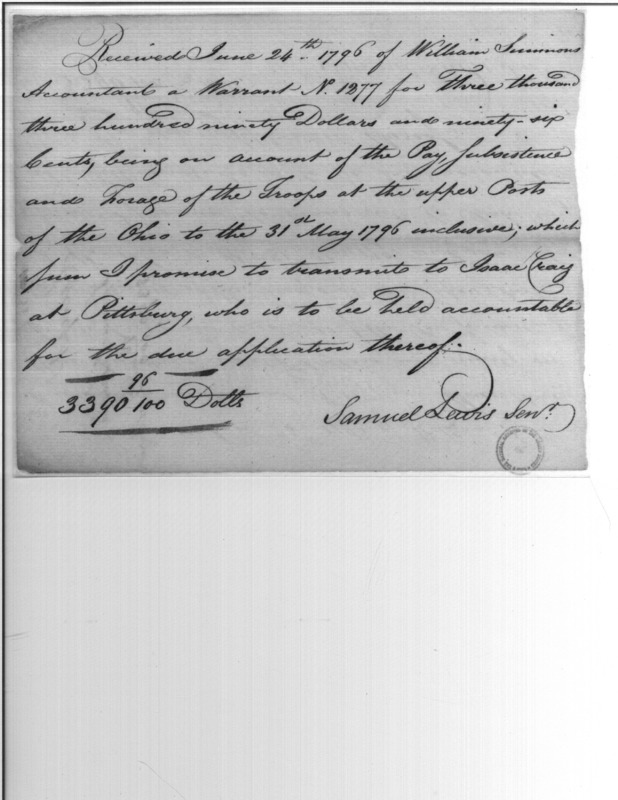 Received June 24th 1796 of William Simmons
Accountant a Warrant No. 1277 for Three thousand
three hundred ninety Dollars and ninety-six
Cents, being on account of the Pay, Subsistence
and Forage of the Troops at the upper Posts
of the Ohio to the 31st May 1796 inclusive; which
sum I promise to transmit to Isaac Craig
at Pittsburg, who is to be held accountable
for the due application thereof.
3390 96/100 Dolls
Samuel Lewis Senr.